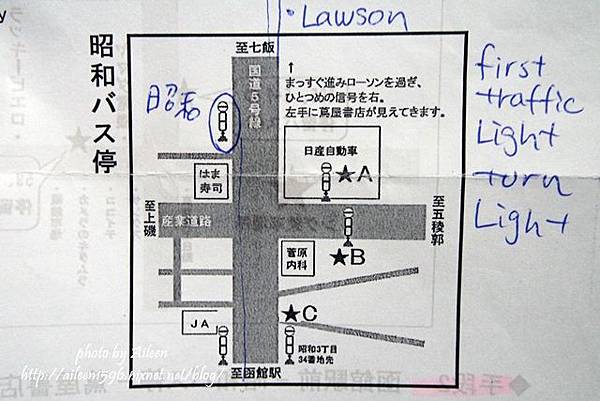 y
• Lawson
昭和バス停
至七飯
国道5号線
↑
まっすぐ進みローソンを過ぎ、
ひとつめの信号を右。
左手に蔦屋書店が見えてきます。
first
traffic
Light
turn
Light
昭和
日産自動車
★A
はま
寿司
至上磯
産業道路
至五稜郭
★B
菅原
内科
★C
JA
昭和3丁目
34番地先
至函館駅
photo by Aileen
http://aileen1596.pixnet.net/blog/
手段2
函館駅前